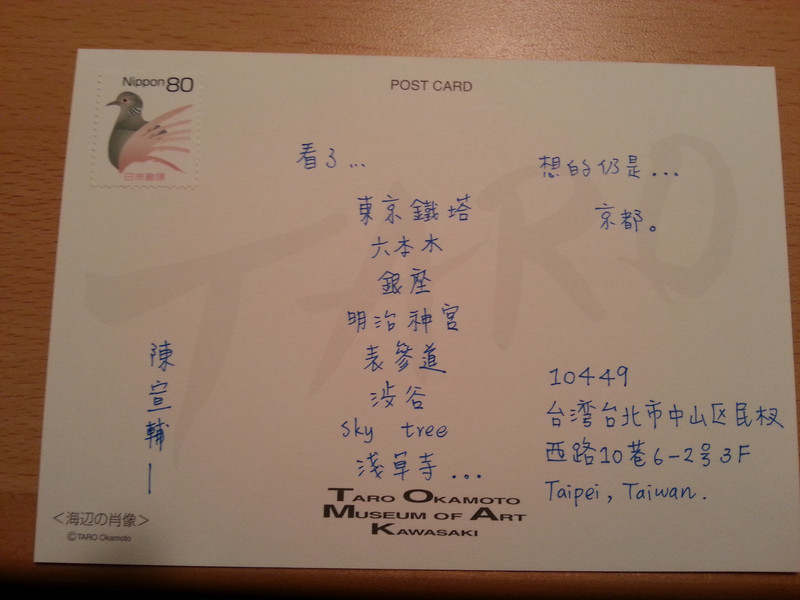 Nippon 80
日本郵便
POST CARD
看了...
東京鐵塔
六本木
銀座
明治神宮
表參道
渋谷
sky tree
淺草寺...
想的仍是...
京都。
陳宣輔
10449
台湾台北市中山区民权
西路10巷6-2号3F
Taipei, Taiwan.
TARO
<海辺の肖像>
©TARO Okamoto
TARO OKAMOTO
MUSEUM OF ART
KAWASAKI